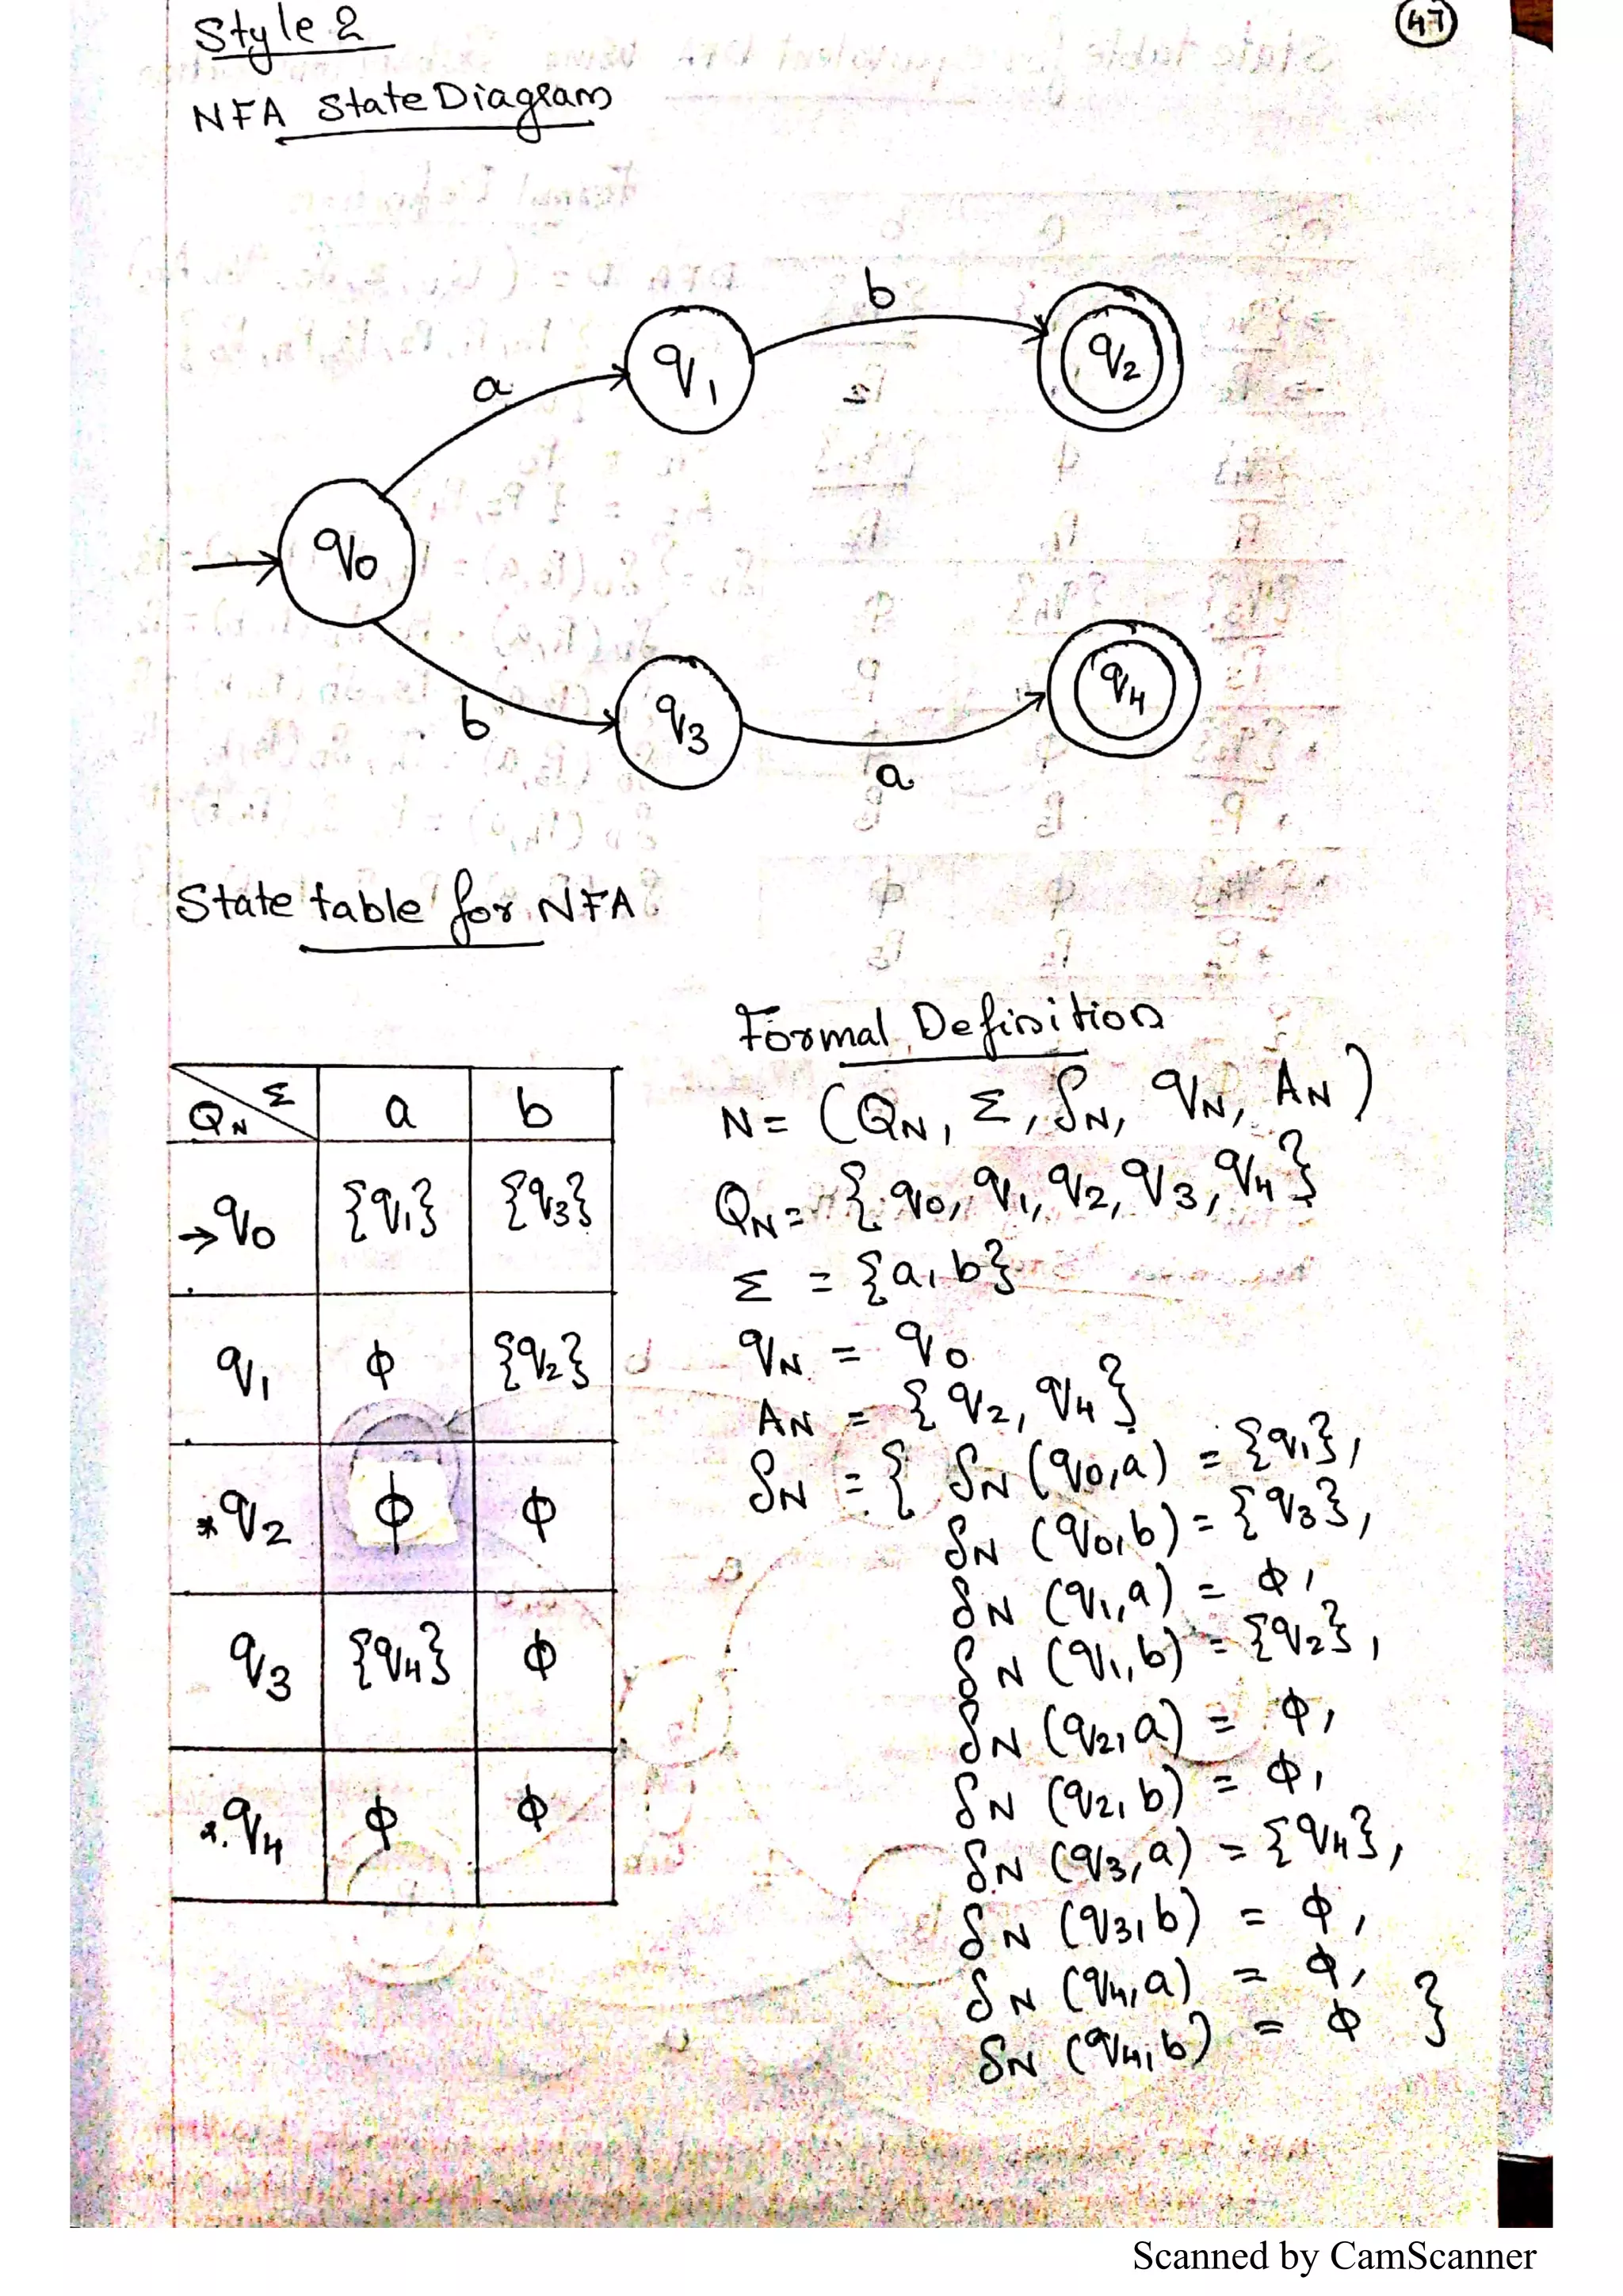 Style 2
47
NFA State Diagram
b
q1
q2
a
q0
q3
q4
b
a
State table for NFA
Formal Definition
QN Σ a b
→q0 {q1} {q3}
q1 ϕ {q2}
*q2 ϕ ϕ
q3 {q4} ϕ
*q4 ϕ ϕ
N = (QN, Σ, δN, qN, AN)
QN = {q0, q1, q2, q3, q4}
Σ = {a, b}
qN = q0
AN = {q2, q4}
δN = { δN (q0, a) = {q1},
δN (q0, b) = {q3},
δN (q1, a) = ϕ,
δN (q1, b) = {q2},
δN (q2, a) = ϕ,
δN (q2, b) = ϕ,
δN (q3, a) = {q4},
δN (q3, b) = ϕ,
δN (q4, a) = ϕ,
δN (q4, b) = ϕ }
Scanned by CamScanner